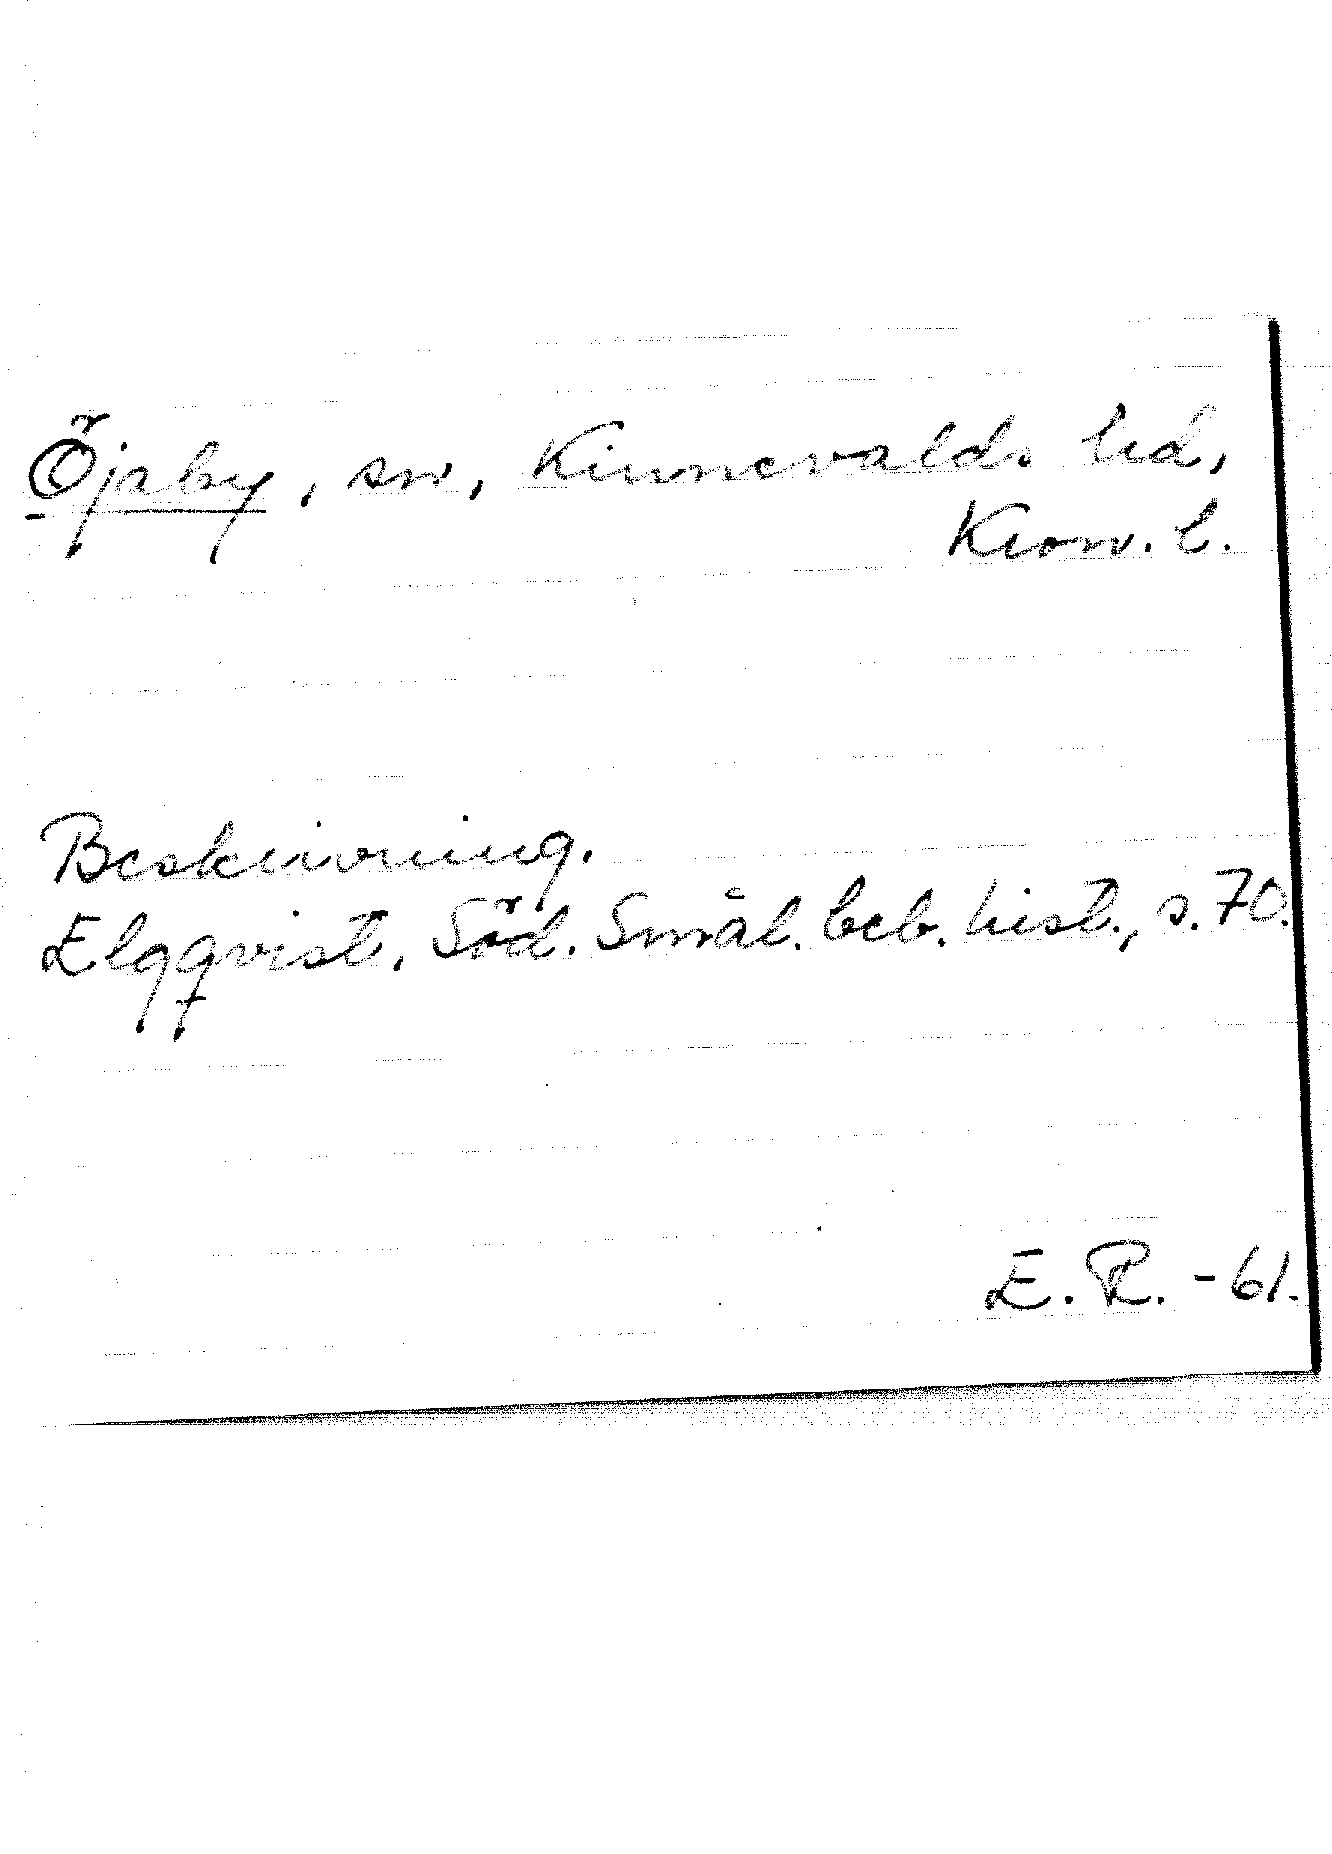 Öjaby, sn, Kinnevalds hd,
Kron. l.
Beskrivning.
Elgqvist, Söd. Smål. beb. hist., s. 70.
E. R. - 61.